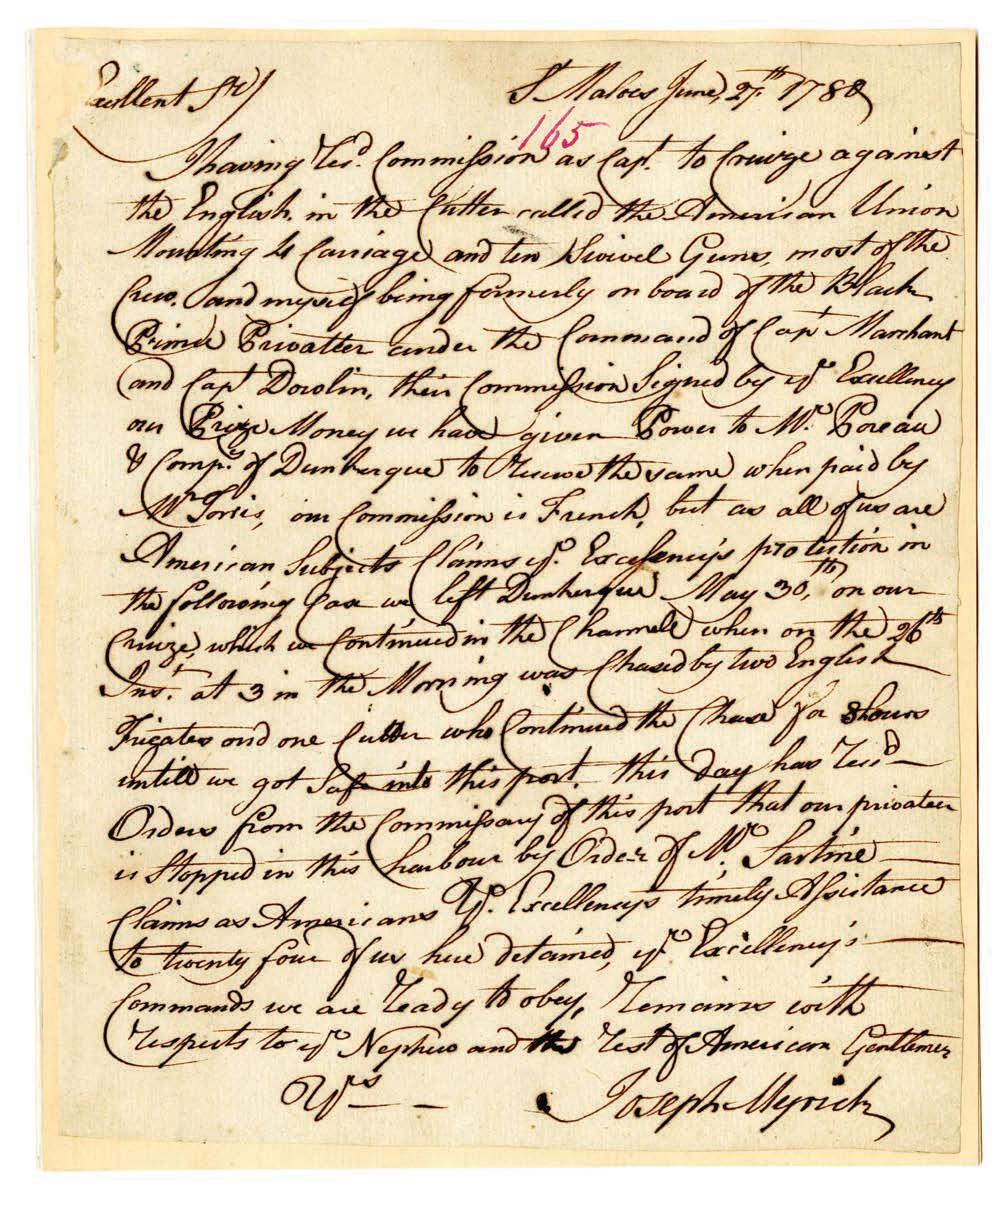 Excellent Sr/ St Maloes June, 27th 1780
165
I having Recd. Commission as Capt. to Cruize against
the English in the Cutter called the American Union
Mounting 4 Carriage and ten Swivel Guns, most of the
Crew. and myself being formerly on board of the Black
Prince Privatter under the Command of Capt Marchant
and Capt Dowlin, their Commission Signed by yr Excellency
our Prize Money we have given Power to Mr. Poreau
& Compy. of Dunkerque to receive the same when paid by
Mr Torris, our Commission is French, but as all of us are
American Subjects Claims yr. Excelency's protection in
the following Case we left Dunkerque May 30th, on our
Cruize, which we Continued in the Channell when on the 26th
Inst. at 3 in the Morning was Chased by two English
Frigates and one Cutter who Continued the Chase for 8 hours
untill we got Safe into this port. this day has Recd
Orders from the Commissary of this port that our privateer
is Stopped in this harbour by Order of Mr. Sartine
Claims as Americans Yr. Excellency's timely Assistance
to twenty four of us here detained, yr Excellency's
Commands we are ready to obey, Remains with
respects to yr Nephew and the rest of American Gentlemen
Yrs
Joseph Myrick